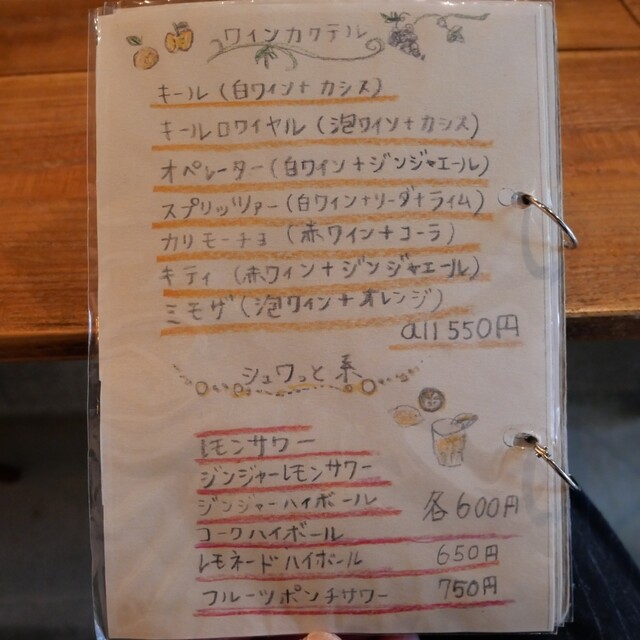 ワインカクテル
キール（白ワイン+カシス）
キールロワイヤル（泡ワイン+カシス）
オペレーター（白ワイン+ジンジャエール）
スプリッツァー（白ワイン+ソーダ+ライム）
カリモーチョ（赤ワイン+コーラ）
キティ（赤ワイン+ジンジャエール）
ミモザ（泡ワイン+オレンジ）
all 550円
シュワっと系
レモンサワー
ジンジャーレモンサワー
ジンジャーハイボール 各600円
コークハイボール
レモネードハイボール 650円
フルーツポンチサワー 750円